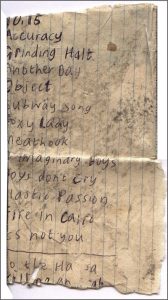 10.15
Accuracy
Grinding Halt
Another Day
Object
Subway song
Foxy Lady
Meathook
imaginary boys
Boys don't Cry
Plastic Passion
Fire in Cairo
s not you
Do the Ha sa
Killing an ab